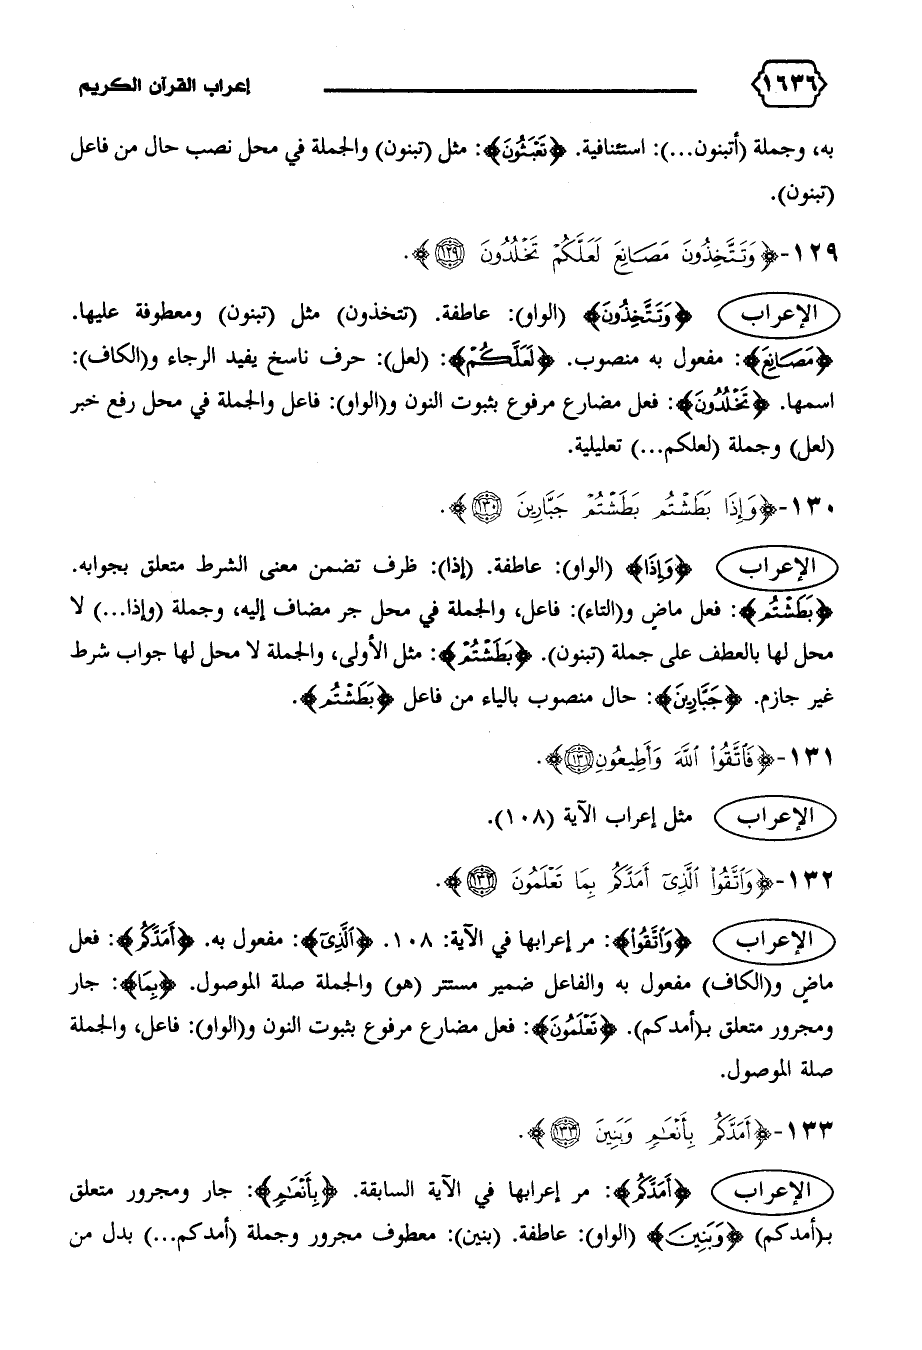 ١٦٣٦ إعراب القرآن الكريم
به، وجملة (أتبنون...): استئنافية. ﴿تَعْبَثُونَ﴾: مثل (تبنون) والجملة في محل نصب حال من فاعل
(تبنون).
١٢٩-﴿وَتَتَّخِذُونَ مَصَانِعَ لَعَلَّكُمْ تَخْلُدُونَ ١٢٩﴾.
الإعراب ﴿وَتَتَّخِذُونَ﴾ (الواو): عاطفة. (تتخذون) مثل (تبنون) ومعطوفة عليها.
﴿مَصَانِعَ﴾: مفعول به منصوب. ﴿لَعَلَّكُمْ﴾: (لعل): حرف ناسخ يفيد الرجاء و(الكاف):
اسمها. ﴿تَخْلُدُونَ﴾: فعل مضارع مرفوع بثبوت النون و(الواو): فاعل والجملة في محل رفع خبر
(لعل) وجملة (لعلكم...) تعليلية.
١٣٠-﴿وَإِذَا بَطَشْتُم بَطَشْتُمْ جَبَّارِينَ ١٣٠﴾.
الإعراب ﴿وَإِذَا﴾ (الواو): عاطفة. (إذا): ظرف تضمن معنى الشرط متعلق بجوابه.
﴿بَطَشْتُم﴾: فعل ماضٍ و(التاء): فاعل، والجملة في محل جر مضاف إليه، وجملة (وإذا...) لا
محل لها بالعطف على جملة (تبنون). ﴿بَطَشْتُمْ﴾: مثل الأولى، والجملة لا محل لها جواب شرط
غير جازم. ﴿جَبَّارِينَ﴾: حال منصوب بالياء من فاعل ﴿بَطَشْتُم﴾.
١٣١-﴿فَاتَّقُوا۟ اللَّهَ وَأَطِيعُونِ ١٣١﴾.
الإعراب مثل إعراب الآية (١٠٨).
١٣٢-﴿وَاتَّقُوا۟ الَّذِىٓ أَمَدَّكُم بِمَا تَعْلَمُونَ ١٣٢﴾.
الإعراب ﴿وَاتَّقُوا۟﴾: مر إعرابها في الآية: ١٠٨. ﴿الَّذِىٓ﴾: مفعول به. ﴿أَمَدَّكُم﴾: فعل
ماضٍ و(الكاف) مفعول به والفاعل ضمير مستتر (هو) والجملة صلة الموصول. ﴿بِمَا﴾: جار
ومجرور متعلق بـ(أمدكم). ﴿تَعْلَمُونَ﴾: فعل مضارع مرفوع بثبوت النون و(الواو): فاعل، والجملة
صلة الموصول.
١٣٣-﴿أَمَدَّكُم بِأَنْعَـٰمٍ وَبَنِينَ ١٣٣﴾.
الإعراب ﴿أَمَدَّكُم﴾: مر إعرابها في الآية السابقة. ﴿بِأَنْعَـٰمٍ﴾: جار ومجرور متعلق
بـ(أمدكم) ﴿وَبَنِينَ﴾ (الواو): عاطفة. (بنين): معطوف مجرور وجملة (أمدكم...) بدل من